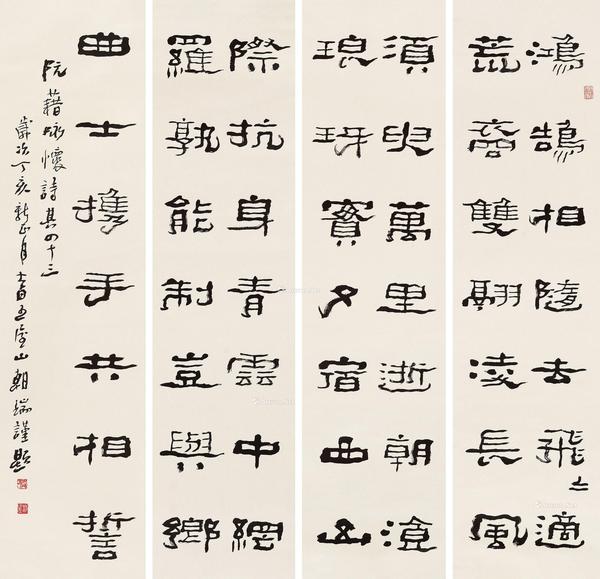 鴻鵠相隨去飛〻適
荒裔雙翮凌長風
須臾萬里逝朝湌
琅玕實夕宿丹山
際抗身青雲中網
羅孰能制豈與鄉
曲士携手共相誓
阮籍詠懷詩其四十三
歲次丁亥新正月山朝瑞謹題